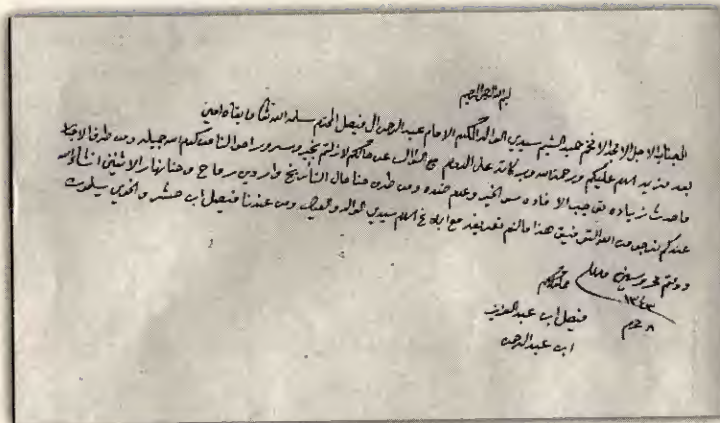 بسم الله الرحمن الرحيم
الجناب الاجل الامجد الافخم حميد الشيم سيدي الوالد المكرم الامام عبدالرحمن ال فيصل المحترم سلمه الله تعالى وابقاه امين
بعد مزيد السلام عليكم ورحمة الله وبركاته على الدوام مع السؤال عن حالكم لازلتم بخير وسرور احوالنا من كرم الله جميله ومن طرف الاخبار
ما حدث زياده توجب الافاده سوى الخير وعلم ومن طرفنا حال التاريخ واردين رماح وحنا نهار الاثنين انشاء الله
عندكم نرجو من الله التوفيق هذا مالزم تعريفه مع ابلاغ السلام سيدي الوالد والعيال ومن عندنا فيصل ابن حشر والخوي يسلمون
ودمتم محروسين والسلام
٨ محرم ١٣٤٣
فيصل ابن عبدالعزيز
ابن عبدالرحمن